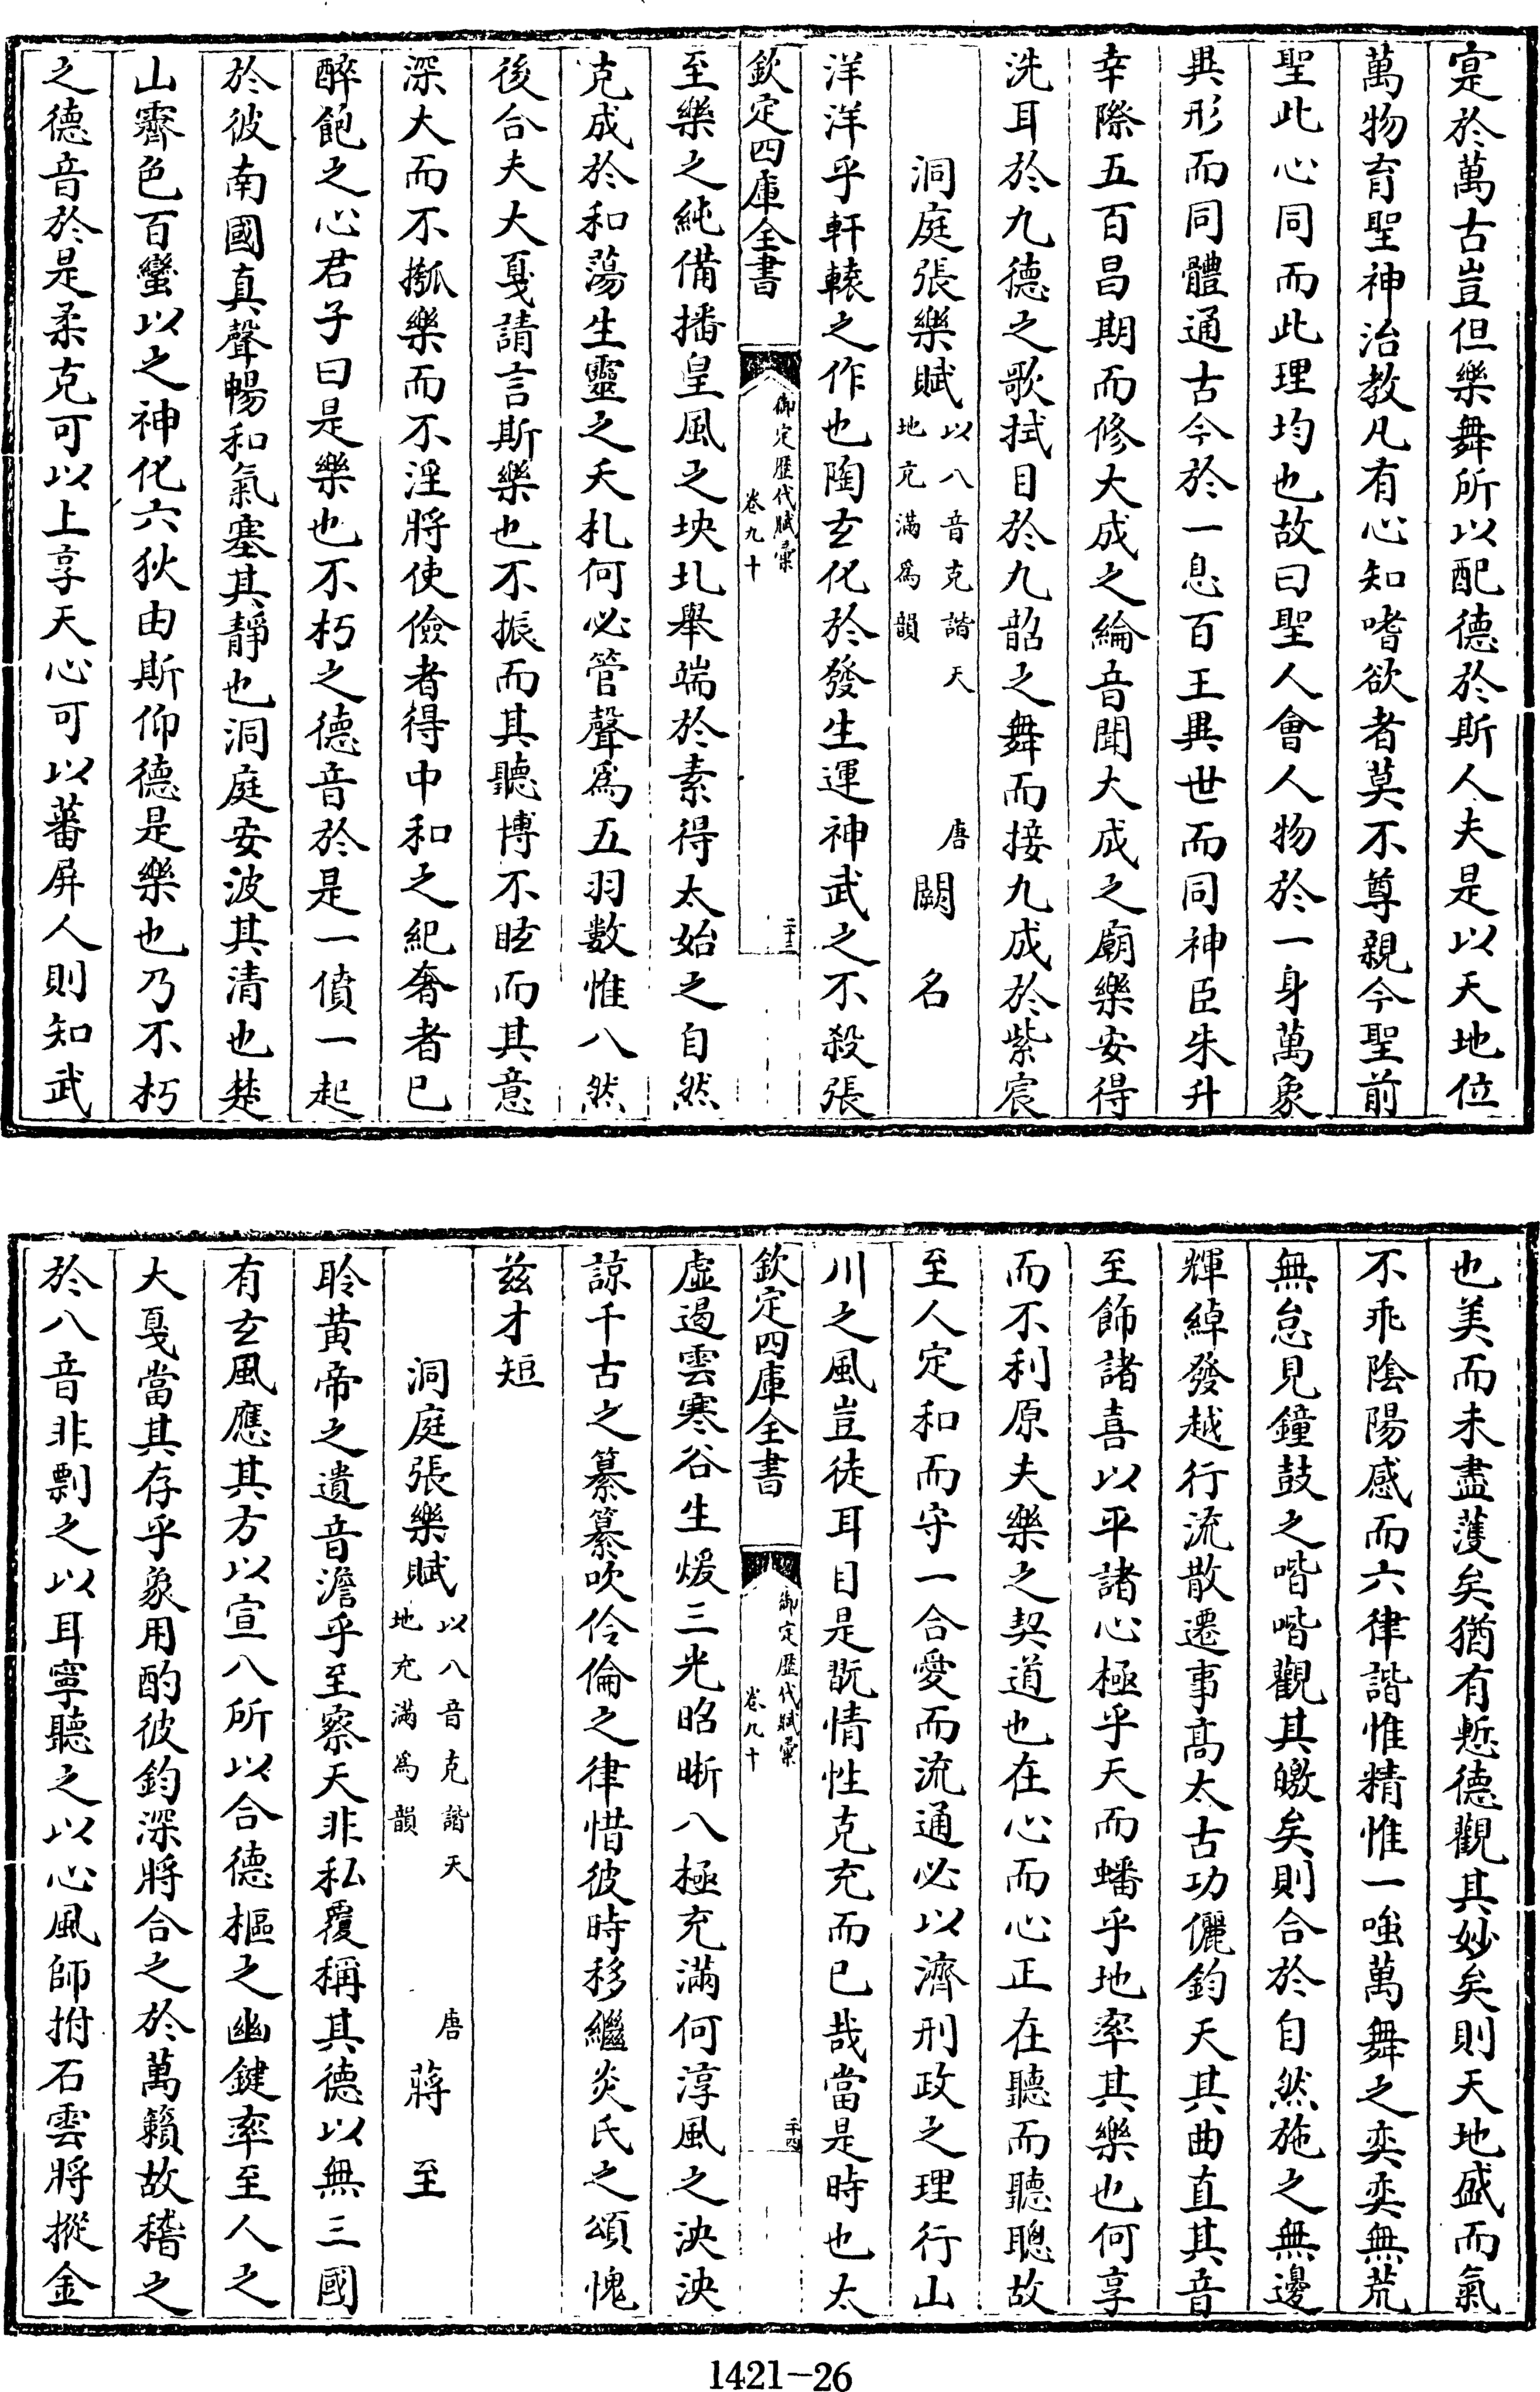 寔於萬古豈但樂舞所以配德於斯人夫是以天地位
萬物育聖神治教凡有心知嗜欲者莫不尊親今聖前
聖此心同而此理均也故曰聖人會人物於一身萬象
異形而同體通古今於一息百王異世而同神臣朱升
幸際五百昌期而修大成之綸音聞大成之廟樂安得
洗耳於九德之歌拭目於九韶之舞而接九成於紫宸
洞庭張樂賦以八音克諧天地充滿爲韻 唐 闕名
洋洋乎軒轅之作也陶玄化於發生運神武之不殺張
欽定四庫全書 御定歷代賦彙 卷九十 二十三
至樂之純備播皇風之坱圠舉端於素得太始之自然
克成於和蕩生靈之夭札何必管聲爲五羽數惟八然
後合夫大戛請言斯樂也不振而其聽博不眩而其意
深大而不摦樂而不淫將使儉者得中和之紀奢者已
醉飽之心君子曰是樂也不朽之德音於是一僨一起
於彼南國真聲暢和氣塞其靜也洞庭安波其清也楚
山霽色百蠻以之神化六狄由斯仰德是樂也乃不朽
之德音於是柔克可以上享天心可以蕃屏人則知武
也美而未盡濩矣猶有慙德觀其妙矣則天地盛而氣
不乖陰陽感而六律諧惟精惟一嗤萬舞之奕奕無荒
無怠見鐘鼓之喈喈觀其皦矣則合於自然施之無邊
輝綽發越行流散遷事高太古功儷鈞天其曲直其音
至飾諸喜以平諸心極乎天而蟠乎地率其樂也何享
而不利原夫樂之契道也在心而心正在聽而聽聰故
至人定和而守一合愛而流通必以濟刑政之理行山
川之風豈徒耳目是翫情性克充而已哉當是時也太
欽定四庫全書 御定歷代賦彙 卷九十 二十四
虛遏雲寒谷生煖三光昭晰八極充滿何淳風之泱泱
諒千古之纂纂吹伶倫之律惜彼時移繼炎氏之頌愧
茲才短
洞庭張樂賦以八音克諧天地充滿爲韻 唐 蔣至
聆黃帝之遺音澹乎至察天非私覆稱其德以無三國
有玄風應其方以宣八所以合德樞之幽鍵率至人之
大戛當其存乎象用酌彼鈞深將合之於萬籟故稽之
於八音非剽之以耳寧聽之以心風師拊石雲將摐金
1421-26